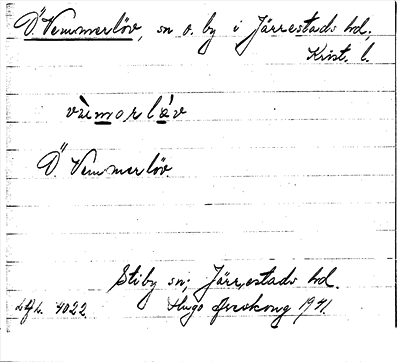 Ö. Vemmerlöv, sn o. by i Järrestads hd,
Krist. l.
vèmorláv
Ö. Vemmerlöv.
Stiby sn; Järrestads hd.
4022. Hugo Areskoug 1941.